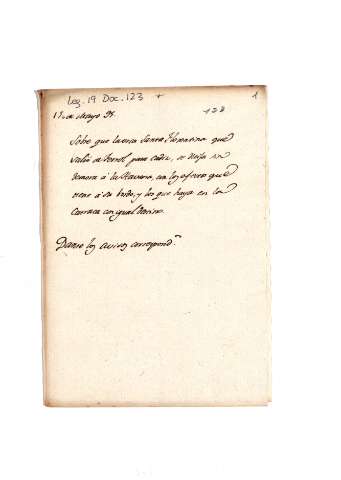 Leg. 19 Doc. 123 +
1
122
11 de Mayo 95.
Sobre que la urca Santa Florentina que
salió de Ferrol para Cadiz, se dirija sin
demora á la Havana, con los efectos que
tiene á su bordo, y los que haya en la
Carraca con igual destino.
Danse los avisos correspond.